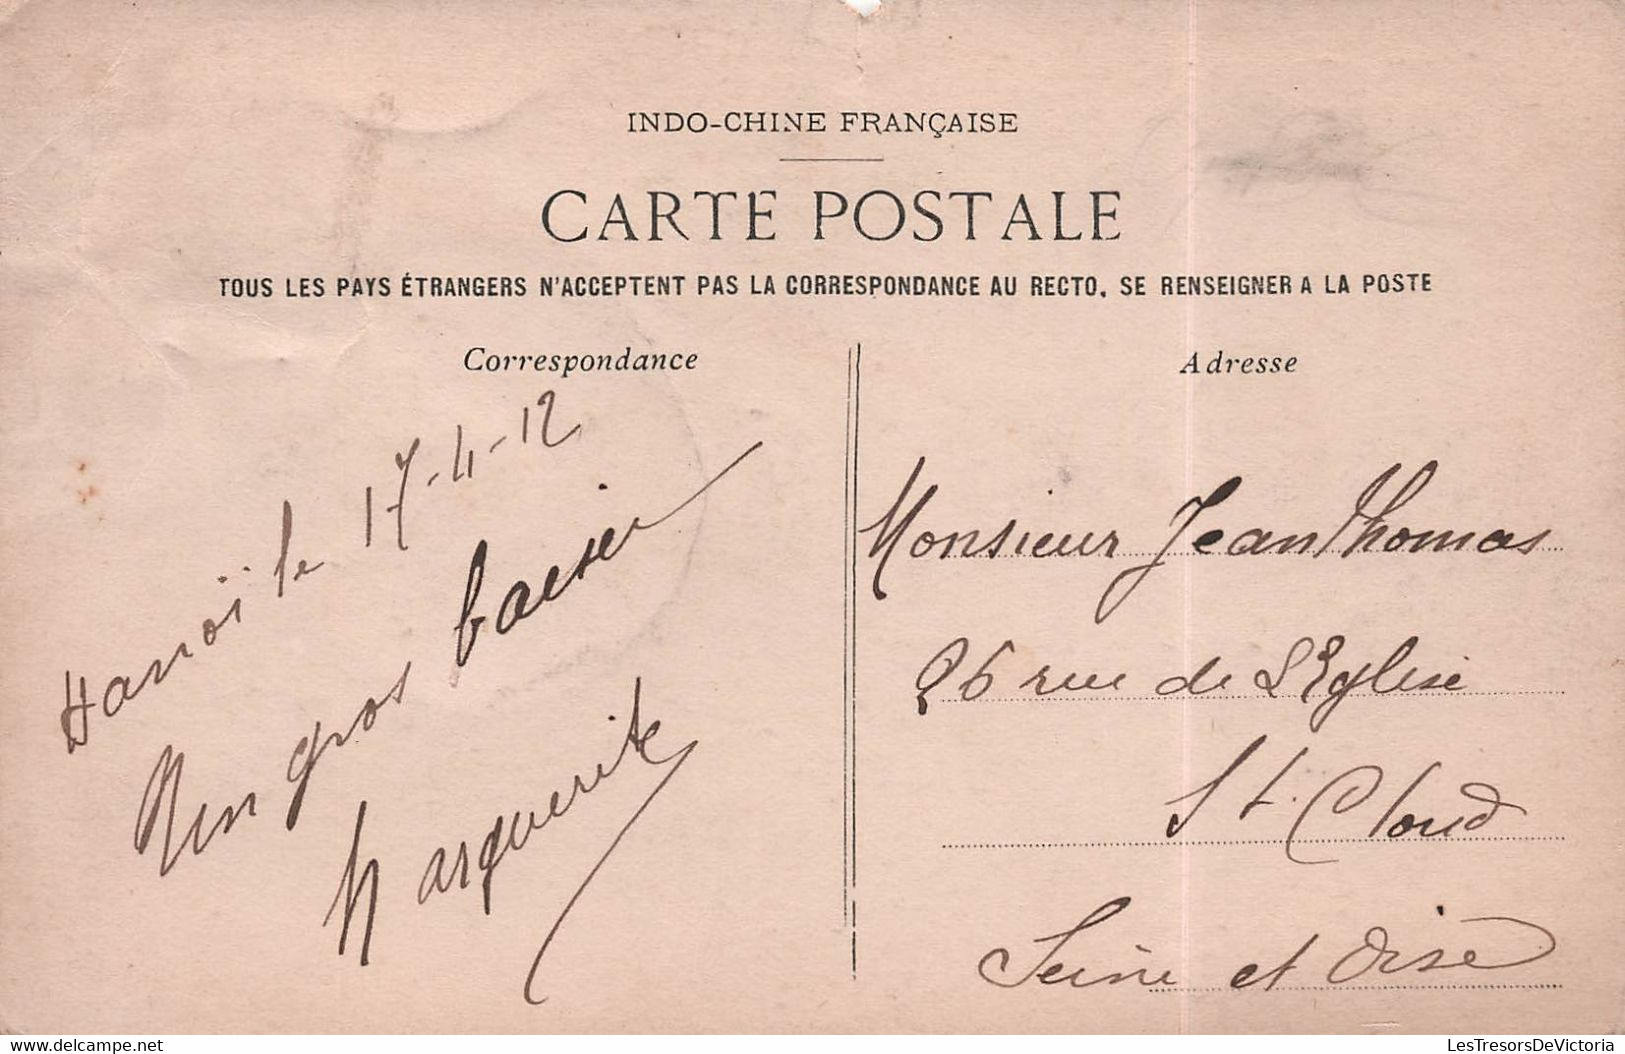 INDO-CHINE FRANÇAISE
CARTE POSTALE
TOUS LES PAYS ÉTRANGERS N'ACCEPTENT PAS LA CORRESPONDANCE AU RECTO, SE RENSEIGNER A LA POSTE
Correspondance
Hanoï le 17-4-12
Un gros baiser
Marguerite
Adresse
Monsieur Jean Thomas
26 rue de L'Eglise
St. Cloud
Seine et Oise
delcampe.net
LesTresorsDeVictoria